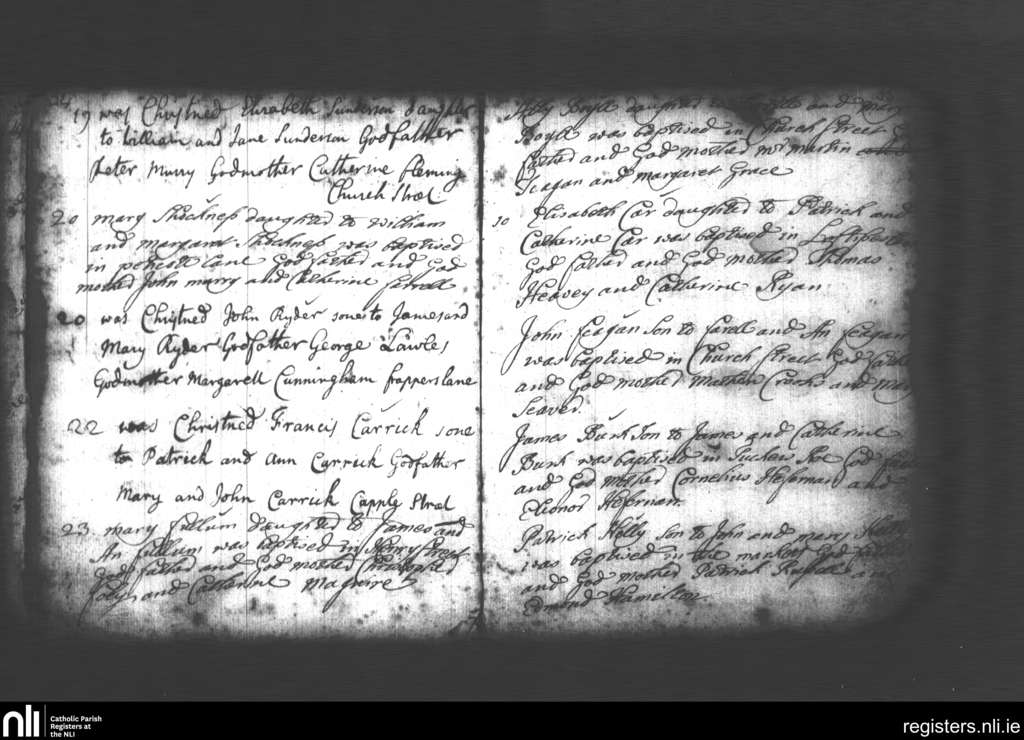 19 was Christned Elizabeth Sunderson daughter
to William and Jane Sunderson Godfather
Peter Murry Godmother Catherine Fleming
Church Street
20 mary Shockness daughter to William
and margaret Shockness was baptised
in lane God father and God
mother John murry and Catherine Farrell
20 was Christned John Ryder sone to James and
Mary Ryder Godfather George Lawles
Godmother Margarett Cunningham frappers lane
22 was Christned Francis Carrick sone
to Patrick and Ann Carrick Godfather
Mary and John Carrick Capple Street
23 mary fullum daughter to James and
An fullum was baptised in Street
God father and God mother Christopher
and Catherine Maguire
Boyle daughter to and mary
Boyle was baptised in Church Street
father and God mother Mr martin
Teagan and margaret Grace
30 Elisabeth Car daughter to Patrick and
Catherine Car was baptised in
God father and God mother Thomas
Heavey and Catherine Ryan
John Eagan Son to farell and An Eagan
was baptised in Church Street God father
and God mother mathew Crooks and mary
Seaver.
James Burk Son to James and Catherine
Burk was baptised in Tuckers God
and God mother Cornelius Hefernan and
Elionor Hefernan.
Patrick Kelly Son to John and mary
was baptised in the market God father
and God mother Patrick and
Edmond Hamelton.
nli
Catholic Parish
Registers at
the NLI
registers.nli.ie